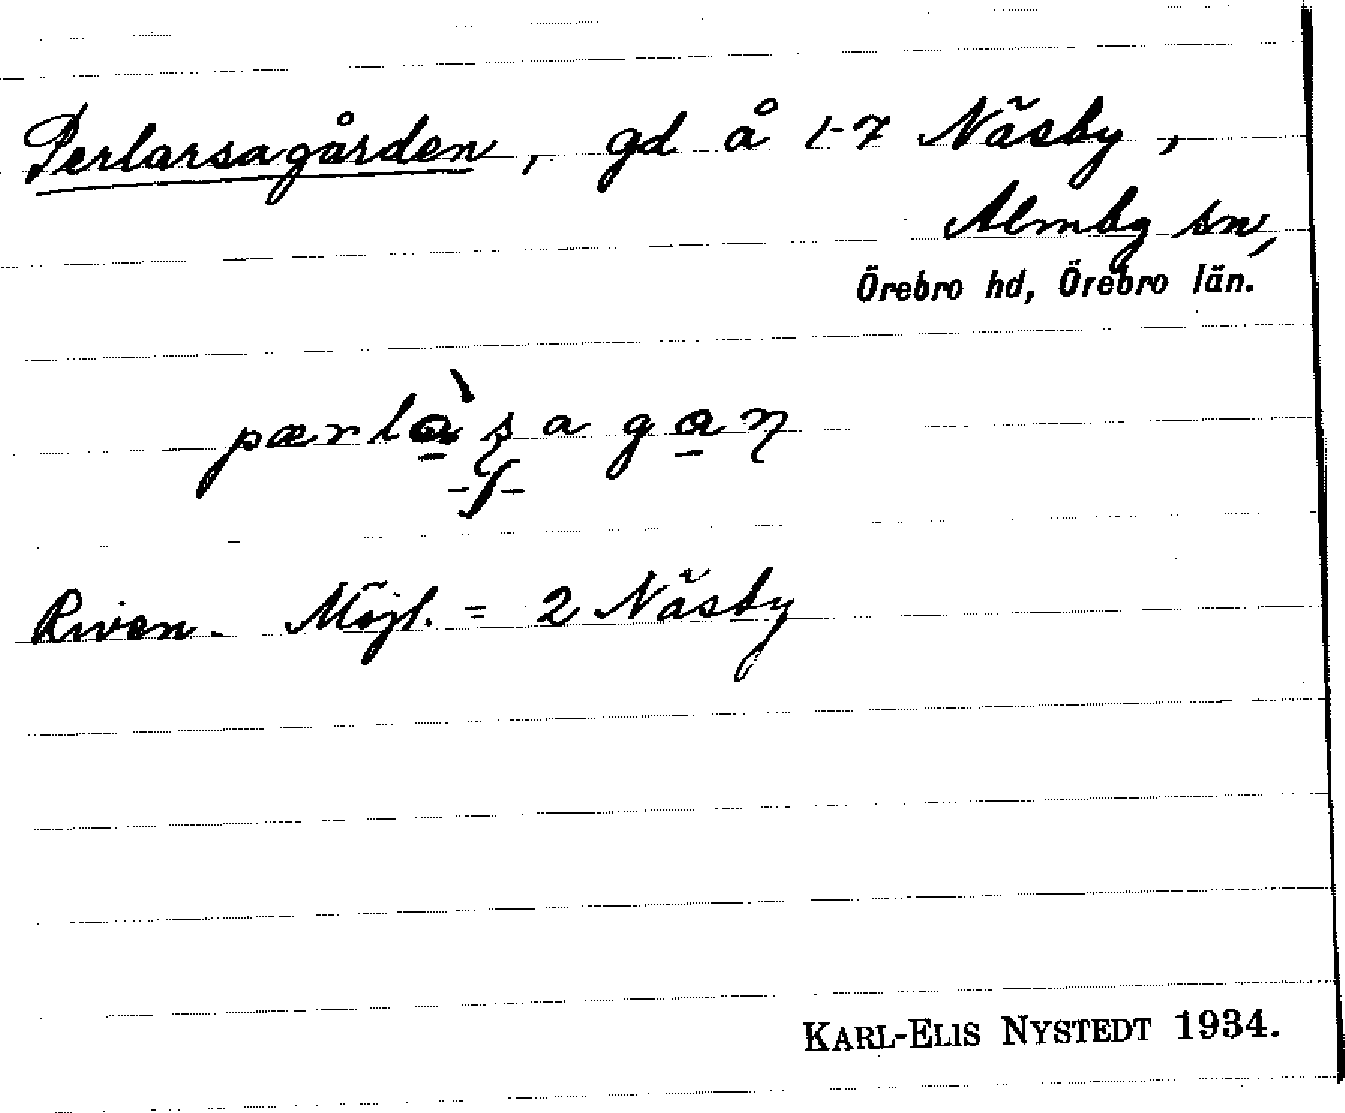 Perlarsagården, gd å 1-7 Näsby,
Almby sn,
Örebro hd, Örebro län.
pærlà̠ʂaga̠ɳ
-ʃ-
Riven. Möjl. = 2 Näsby
KARL-ELIS NYSTEDT 1934.